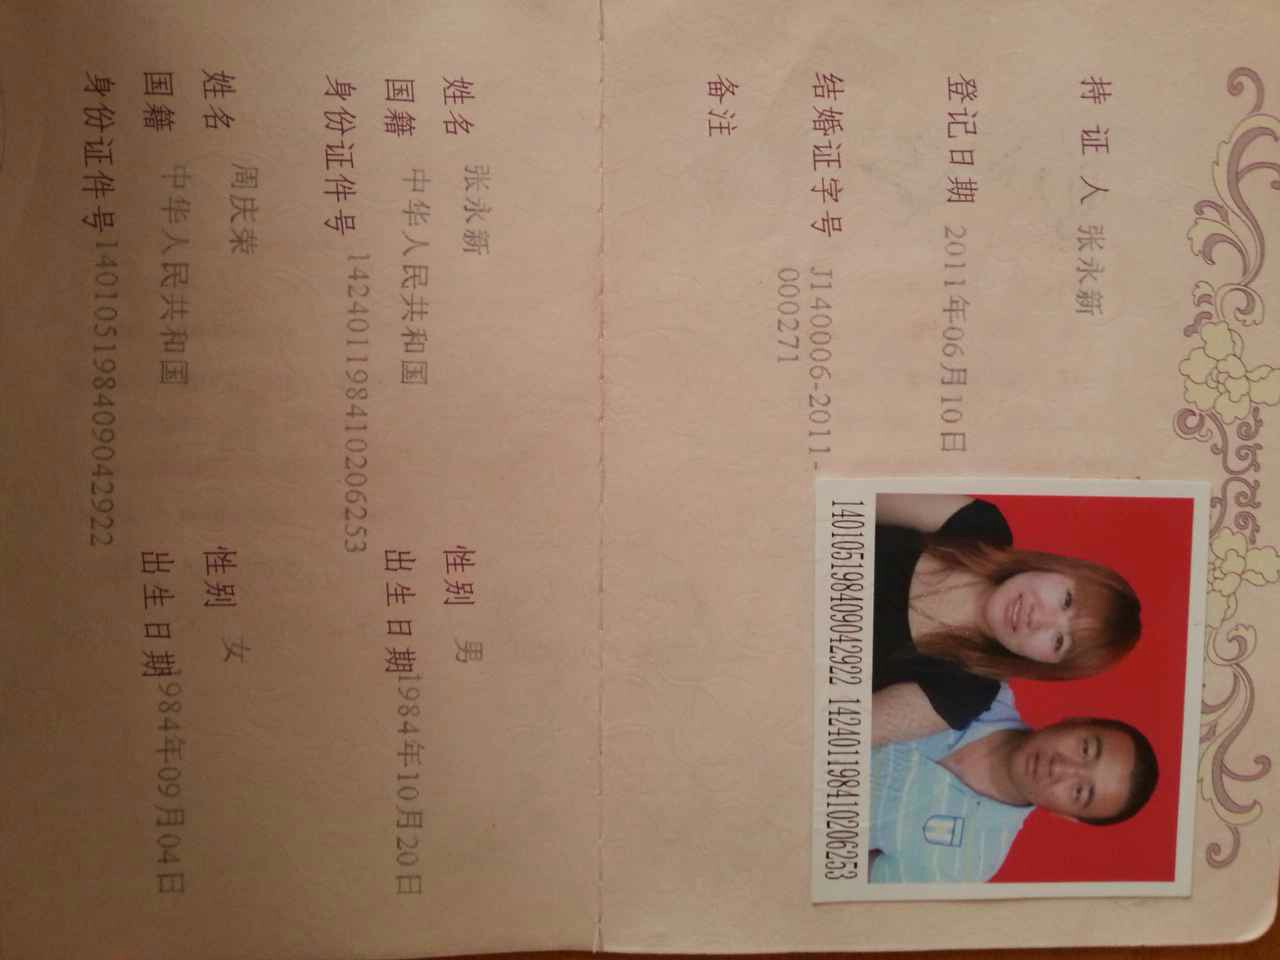 持证人 张永新
登记日期 2011年06月10日
结婚证字号 J140006-2011-
000271
备注
140105198409042922 142401198410206253
姓名 张永新 性别 男
国籍 中华人民共和国 出生日期 1984年10月20日
身份证件号 142401198410206253
姓名 周庆荣 性别 女
国籍 中华人民共和国 出生日期 1984年09月04日
身份证件号 140105198409042922